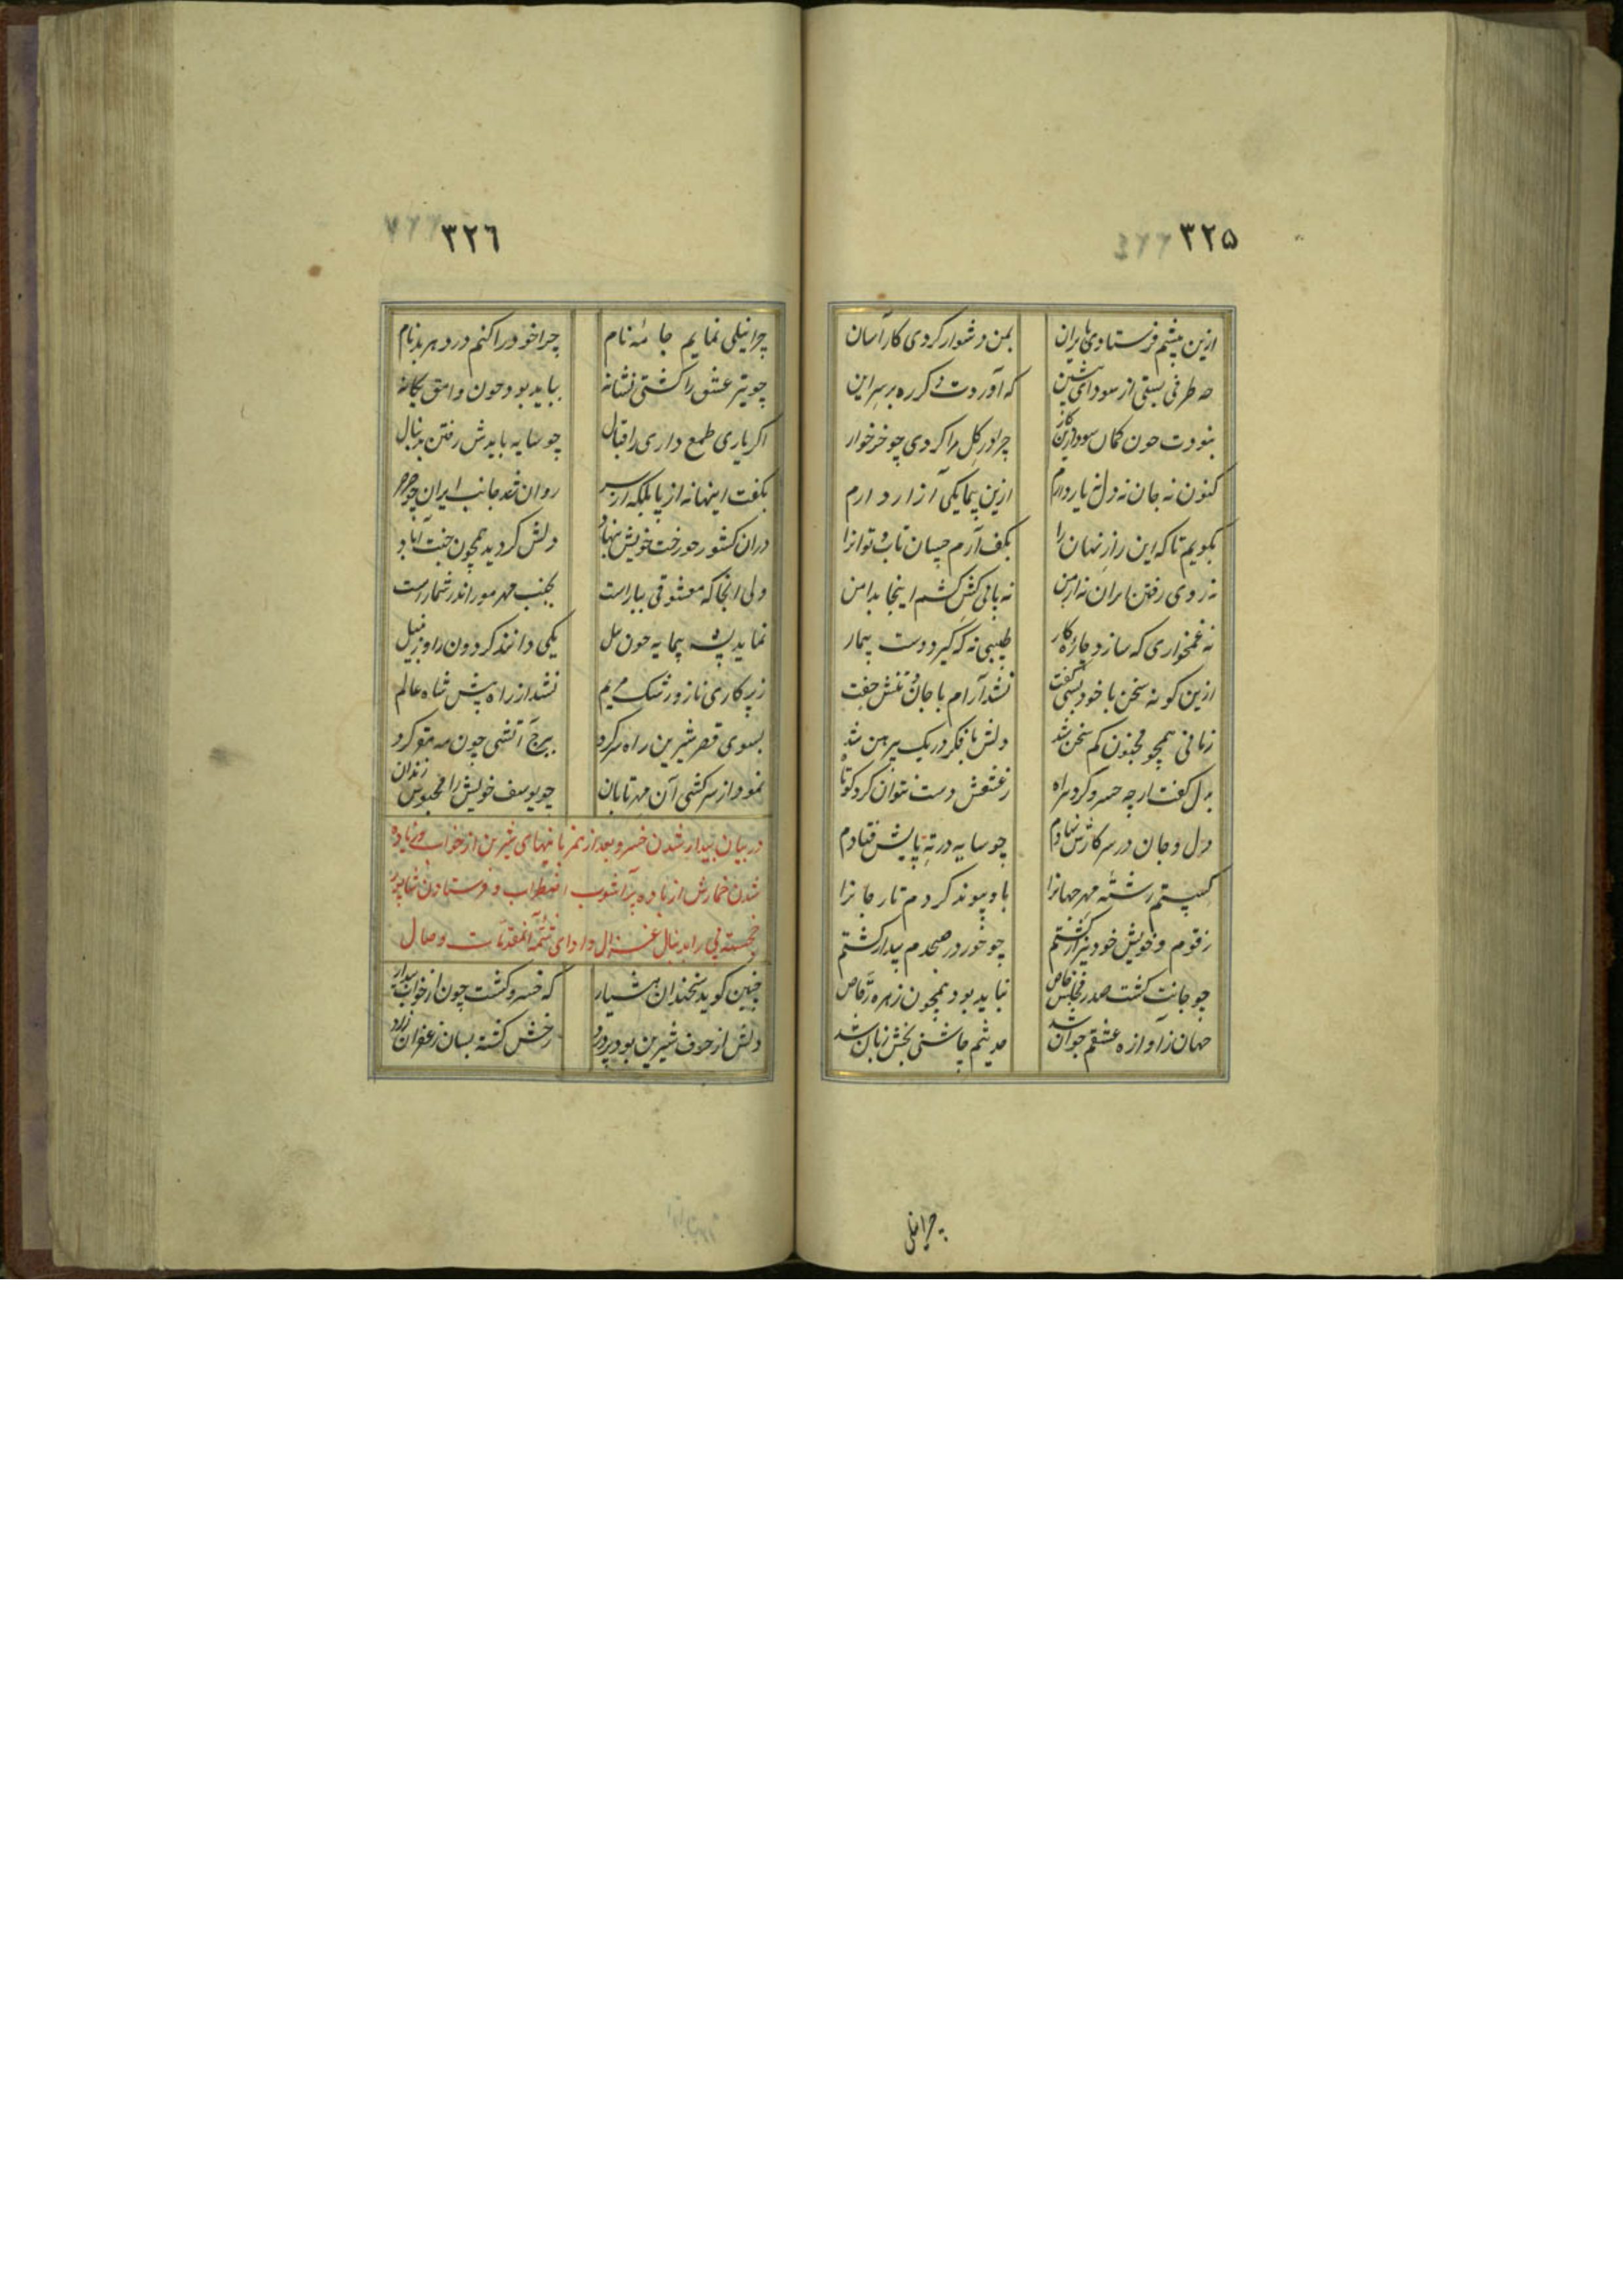 ۳۲۵
ازین پیشم فرستادی بایران بمن دشوار کردی کار آسان
چه طرفی بستی از سودای پیشین که آوردت دگر ره بر سر این
نبودت چون کمان سود ازین کار چرا در گل مرا کردی چو خر خوار
کنون نه جان نه دل نه یار دارم ازین هر یکی آزار دارم
بگویم تا که این راز نهان را بکف آرم چسان تاب و توانرا
نه روی رفتن ایران نه ارمن نه پائی کش کشم اینجا بدامن
نه غمخواری که سازد چاره کار طبیبی نه که گیرد دست بیمار
ازین گونه سخن با خود بسی گفت نشد آرام با جان و تنش جفت
زمانی همچو مجنون کم سخن شد دلش با فکر در یک پیرهن شد
بدل گفت ار چه خسرو کرد بیراه ز عشقش دست نتوان کرد کوتاه
دل و جان در سر کارش نهادم چو سایه در ته پایش فتادم
گسستم رشته مهر جهانرا باو پیوند کردم تار جانرا
ز قوم و خویش خود بیزار گشتم چو خور در صبحدم بیدار گشتم
چو جانت گشت صدر مجلس خاص نباید بود همچون زهره رقاص
جهان ز آوازه عشقم جوان شد حدیثم چاشنی بخش زبان شد
چرا نیلی
۳۲۶
چرا نیلی نمایم جامه نام چرا خود را کنم در دهر بدنام
چو تیر عشق را گشتی نشانه بباید بود چون وامق یگانه
اگر یاری طمع داری ز اقبال چو سایه بایدش رفتن بدنبال
بگفت اینها نه از پا بلکه از سر روان شد جانب ایران چو صرصر
دران کشور چو رخت خویش بنهاد دلش گردید همچون جنت آباد
ولی آنجا که معشوقی بباراست بجنب مهر مور اندر شمار است
نماید پشه پیمایه چون پیل یکی دانند گردون را و زنبیل
ز پرکاری ناز و رشک مریم نشد از راه پیش شاه عالم
بسوی قصر شیرین راه سر کرد ببرج آتشی چون مه مقر کرد
نمود از سرکشی آن مهر تابان چو یوسف خویش را محبوس زندان
در بیان بیدار شدن خسرو بعد از نمربانیهای شیرین از خواب و زیاده
شدن خمارش از باده پر آشوب اضطراب و فرستادن شاپور
خجسته پی را بدنبال غزال و ادای تتمه المقدمات وصال
چنین گوید سخندان هشیار که خسرو گشت چون از خواب بیدار
دلش از حرف شیرین بود پر درد رخش گشته بسان زعفران زرد